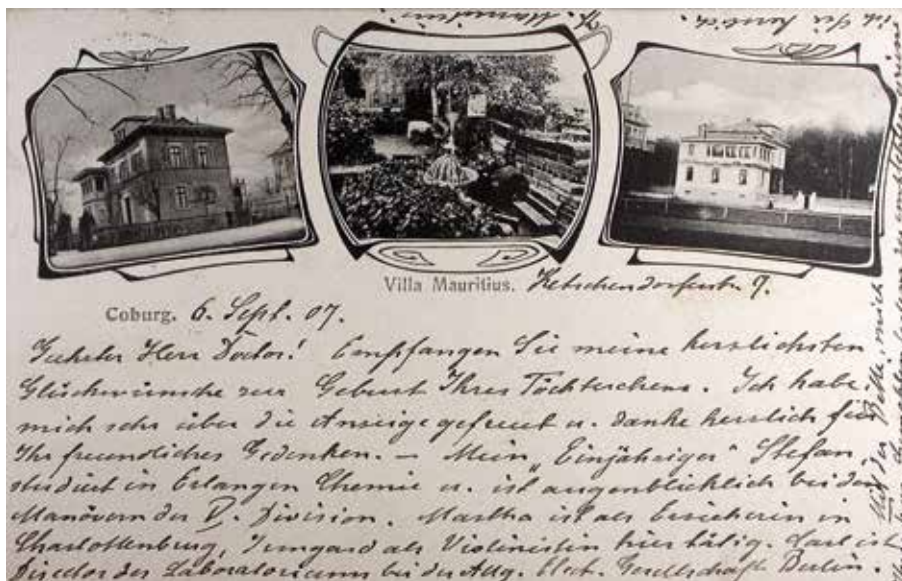 Villa Mauritius. Ketschendorferstr. 9.
Coburg. 6. Sept. 07.
Geehrter Herr Doctor! Empfangen Sie meine herzlichsten
Glückwünsche zur Geburt Ihres Töchterchens. Ich habe
mich sehr über die Anzeige gefreut u. danke herzlich für
Ihr freundliches Gedenken. – Mein „Einjähriger" Stefan,
studiert in Erlangen Chemie u. ist augenblicklich bei den
Manövern der V. Division. Martha ist als Erzieherin in
Charlottenburg, Irmgard als Violinistin hier tätig. Carl ist
Director des Laboratoriums bei der Allg. Elect. Gesellschaft Berlin.
Mit der Bitte, mich